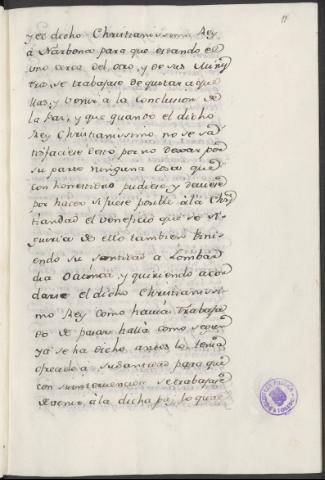 11
y el dicho Christianissimo Rey
à Narbona para que estando el
uno cerca del otro, y de sus Minis
tros se trabajase de quitar aque
llas, y venir à la conclusion de
la Paz, y que quando el dicho
Rey Christianissimo no se sa
tisfaciese desto por no dexar por
su parte ninguna cosa que
con honestidad pudiese, y deviese
por hacer si fuese posible à la Chris
tiandad el beneficio que se se
guiria de ello tambien tini
endo su santidad à Lombar
dia cerca, y quiriendo acor
darse el dicho Christianissi
mo Rey como havia trabaja
do de pasar halla como segun
ya se ha dicho antes lo tenia
ofrecido à su Santidad para que
con su intervencion se trabajase
de venir à la dicha paz, lo qual